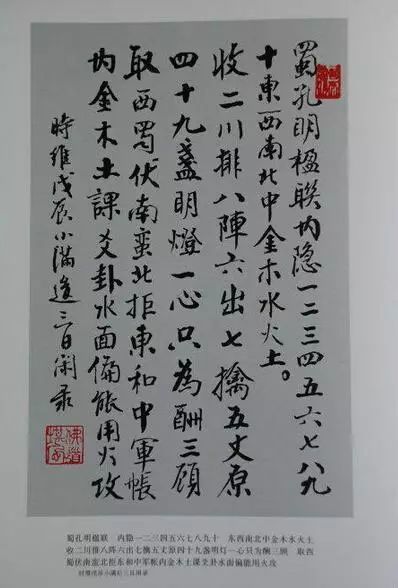 蜀孔明楹聯内隐一二三四五六七八九
十東西南北中金木水火土。
收二川排八陣六出七擒五丈原
四十九盞明燈一心只為酬三顧
取西蜀伏南蛮北拒東和中軍帳
内金木土課爻卦水面偏能用火攻
時維戊辰小滿後三日閑录
蜀孔明楹联 内隐一二三四五六七八九十 东西南北中金木水火土
收二川排八阵六出七擒五丈原四十九盏明灯一心只为酬三顾 取西
蜀伏南蛮北拒东和中军帐内金木土课爻卦水面偏能用火攻
时维戊辰小满后三日闲录